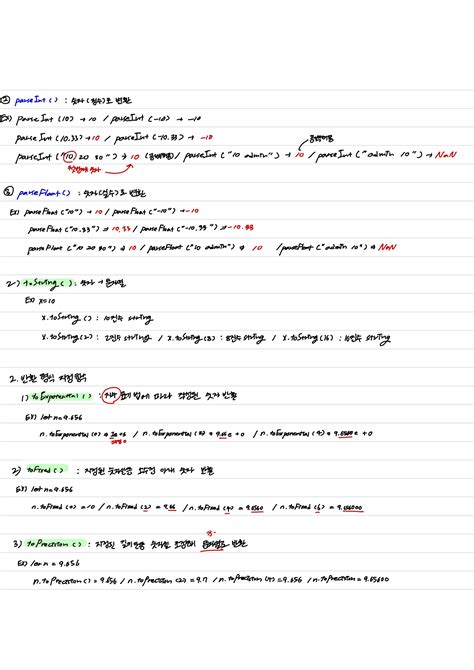 ② parseInt() : 숫자(정수)로 변환
Ex) parseInt(10) → 10 / parseInt(-10) → -10
parseInt(10.33) → 10 / parseInt(-10.33) → -10
공백허용
parseInt("10 20 30") → 10 (공백허용) / parseInt("10 admin") → 10 / parseInt("admin 10") → NaN
첫번째 숫자
③ parseFloat() : 숫자(실수)로 변환
Ex) parseFloat("10") → 10 / parseFloat("-10") → -10
parseFloat("10.33") → 10.33 / parseFloat("-10.33") → -10.33
parseFloat("10 20 30") → 10 / parseFloat("10 admin") → 10 / parseFloat("admin 10") → NaN
2) toString() : 숫자 → 문자열
Ex) x=10
x.toString() : 10진수 string
x.toString(2) : 2진수 string / x.toString(8) : 8진수 string / x.toString(16) : 16진수 string
2. 반환 형식 지정 함수
1) toExponential() : 지수 표기법에 따라 작성된 숫자 반환
Ex) let n=9.656
n.toExponential(0) → / n.toExponential(2) → 9.66e+0 / n.toExponential(4) → 9.6560e+0
2) toFixed() : 지정된 숫자만큼 소수점 아래 숫자 반환
Ex) let n=9.656
n.toFixed(0) = 10 / n.toFixed(2) = 9.66 / n.toFixed(4) = 9.6560 / n.toFixed(6) = 9.656000
3) toPrecision() : 지정된 길이만큼 숫자를 반환
Ex) let n = 9.656
n.toPrecision() = 9.656 / n.toPrecision(2) = 9.7 / n.toPrecision(4) = 9.656 / n.toPrecision(6) = 9.65600